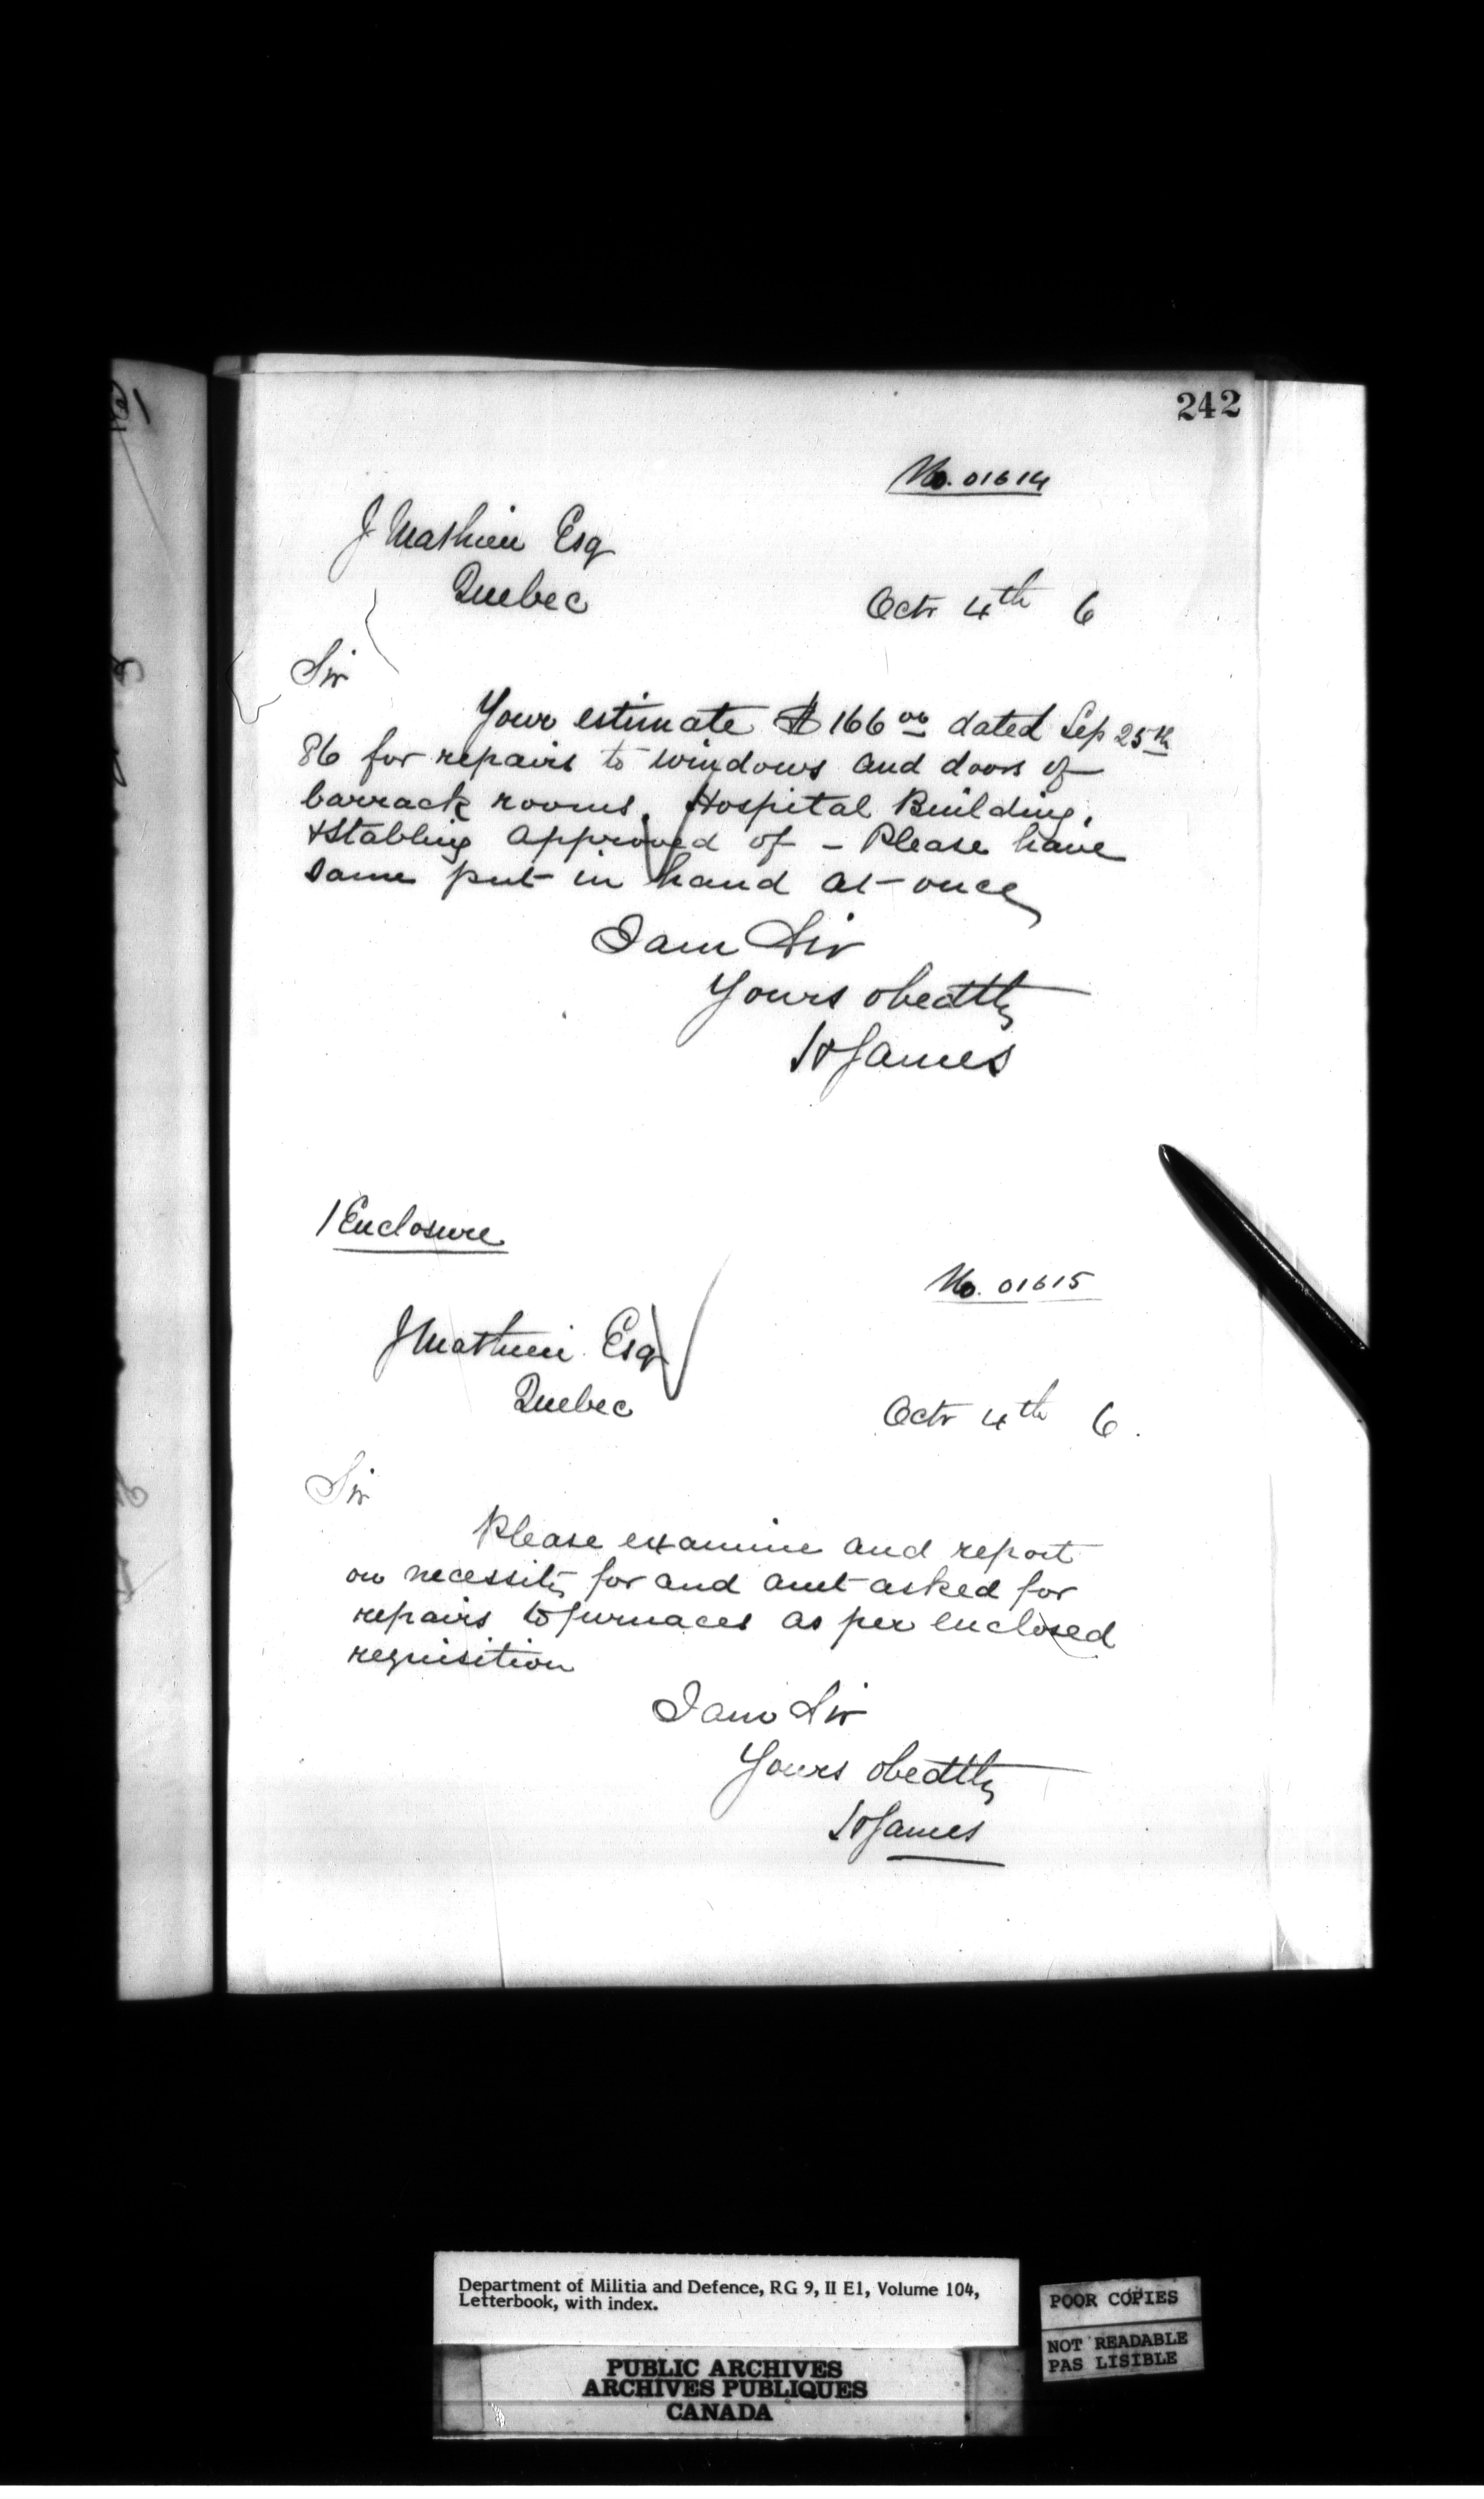 242
No. 01614
J Mathieu Esq
Quebec
Octr 4th 6
Sir
Your estimate $166 00 dated Sep 25th
86 for repairs to windows and doors of
barrack rooms, Hospital Building,
& Stabling approved of - Please have
same put in hand at once
I am Sir
Yours obedtly
H James
1 Enclosure
No. 01615
J Mathieu Esq
Quebec
Octr 4th 6.
Sir
Please examine and report
on necessity for and amt asked for
repairs to furnaces as per enclosed
requisition
I am Sir
Yours obedtly
H James
Department of Militia and Defence, RG 9, II E1, Volume 104,
Letterbook, with index.
POOR COPIES
NOT READABLE
PAS LISIBLE
PUBLIC ARCHIVES
ARCHIVES PUBLIQUES
CANADA